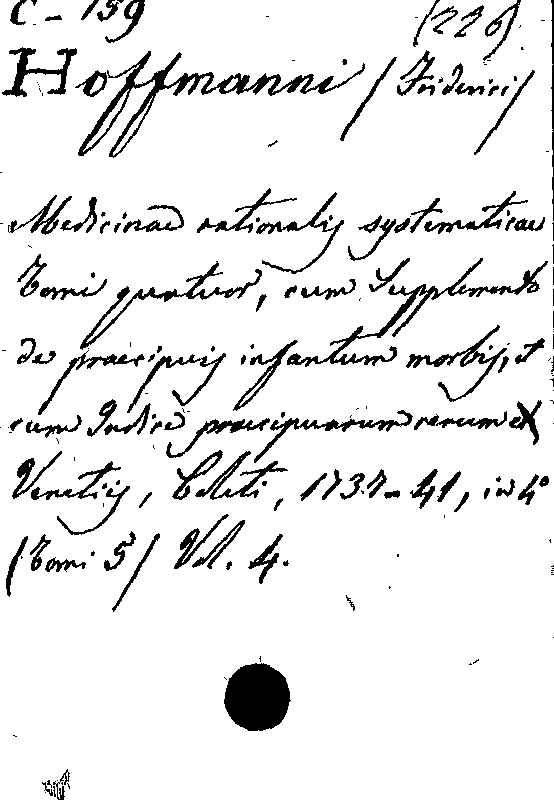 C - 159 (226)
Hoffmanni (Friderici)
Medicinae rationalis systematicae
Tomi quatuor, cum Supplemento
de praecipuis infantum morbis, et
cum Indice praecipuarum rerum
Venetiis, Coleti, 1737-41, in 4°
(Tomi 5) Vol. 4.